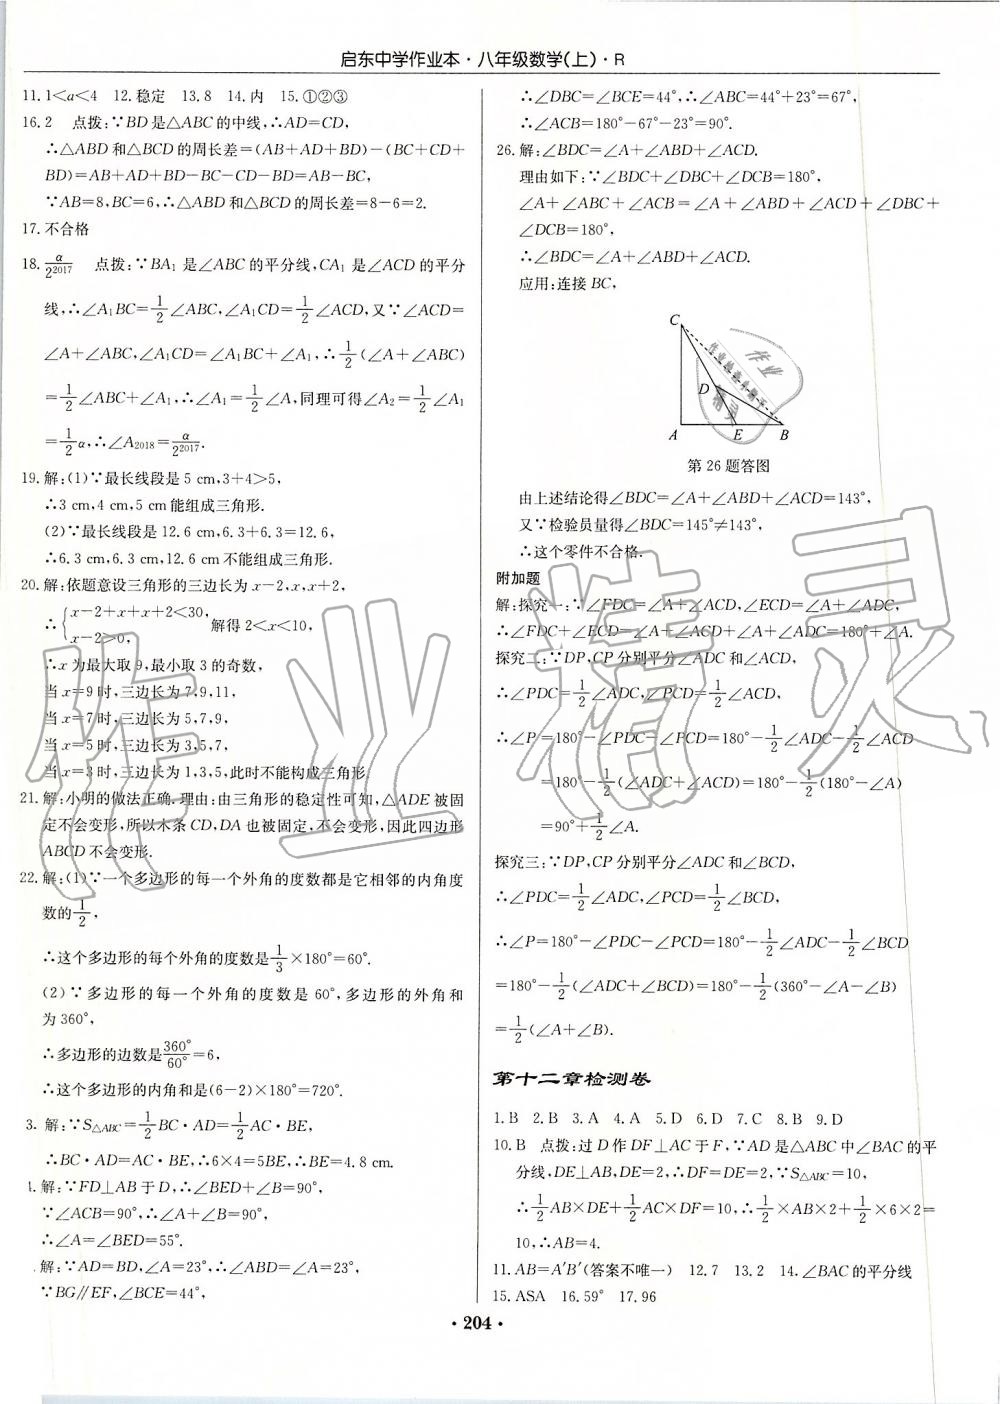 启东中学作业本·八年级数学(上)·R
11.1<a<4 12.稳定 13.8 14.内 15.①②③
16.2 点拨:∵BD是△ABC的中线,∴AD=CD,
∴△ABD和△BCD的周长差=(AB+AD+BD)-(BC+CD+
BD)=AB+AD+BD-BC-CD-BD=AB-BC,
∵AB=8,BC=6,∴△ABD和△BCD的周长差=8-6=2.
17.不合格
18.α/2²⁰¹⁷ 点拨:∵BA₁是∠ABC的平分线,CA₁是∠ACD的平分
线,∴∠A₁BC=1/2∠ABC,∠A₁CD=1/2∠ACD,又∵∠ACD=
∠A+∠ABC,∠A₁CD=∠A₁BC+∠A₁,∴1/2(∠A+∠ABC)
=1/2∠ABC+∠A₁,∴∠A₁=1/2∠A,同理可得∠A₂=1/2∠A₁
=1/2²α,∴∠A₂₀₁₈=α/2²⁰¹⁷.
19.解:(1)∵最长线段是5 cm,3+4>5,
∴3 cm,4 cm,5 cm能组成三角形.
(2)∵最长线段是12.6 cm,6.3+6.3=12.6,
∴6.3 cm,6.3 cm,12.6 cm不能组成三角形.
20.解:依题意设三角形的三边长为x-2,x,x+2,
∴{x-2+x+x+2<30,
x-2>0, 解得2<x<10,
∴x为最大取9,最小取3的奇数,
当x=9时,三边长为7,9,11,
当x=7时,三边长为5,7,9,
当x=5时,三边长为3,5,7,
当x=3时,三边长为1,3,5,此时不能构成三角形.
21.解:小明的做法正确.理由:由三角形的稳定性可知,△ADE被固
定不会变形,所以木条CD,DA也被固定,不会变形,因此四边形
ABCD不会变形.
22.解:(1)∵一个多边形的每一个外角的度数都是它相邻的内角度
数的1/2,
∴这个多边形的每个外角的度数是1/3×180°=60°.
(2)∵多边形的每一个外角的度数是60°,多边形的外角和
为360°,
∴多边形的边数是360°/60°=6,
∴这个多边形的内角和是(6-2)×180°=720°.
3. 解:∵S△ABC=1/2BC·AD=1/2AC·BE,
∴BC·AD=AC·BE,∴6×4=5BE,∴BE=4.8 cm.
4.解:∵FD⊥AB于D,∴∠BED+∠B=90°,
∵∠ACB=90°,∴∠A+∠B=90°,
∴∠A=∠BED=55°.
解:∵AD=BD,∠A=23°,∴∠ABD=∠A=23°,
∵BG∥EF,∠BCE=44°,
∴∠DBC=∠BCE=44°,∴∠ABC=44°+23°=67°,
∴∠ACB=180°-67°-23°=90°.
26.解:∠BDC=∠A+∠ABD+∠ACD.
理由如下:∵∠BDC+∠DBC+∠DCB=180°,
∠A+∠ABC+∠ACB=∠A+∠ABD+∠ACD+∠DBC+
∠DCB=180°,
∴∠BDC=∠A+∠ABD+∠ACD.
应用:连接BC,
C
D
A E B
第26题答图
由上述结论得∠BDC=∠A+∠ABD+∠ACD=143°,
又∵检验员量得∠BDC=145°≠143°,
∴这个零件不合格.
附加题
解:探究一:∵∠FDC=∠A+∠ACD,∠ECD=∠A+∠ADC,
∴∠FDC+∠ECD=∠A+∠ACD+∠A+∠ADC=180°+∠A.
探究二:∵DP,CP分别平分∠ADC和∠ACD,
∴∠PDC=1/2∠ADC,∠PCD=1/2∠ACD,
∴∠P=180°-∠PDC-∠PCD=180°-1/2∠ADC-1/2∠ACD
=180°-1/2(∠ADC+∠ACD)=180°-1/2(180°-∠A)
=90°+1/2∠A.
探究三:∵DP,CP分别平分∠ADC和∠BCD,
∴∠PDC=1/2∠ADC,∠PCD=1/2∠BCD,
∴∠P=180°-∠PDC-∠PCD=180°-1/2∠ADC-1/2∠BCD
=180°-1/2(∠ADC+∠BCD)=180°-1/2(360°-∠A-∠B)
=1/2(∠A+∠B).
第十二章检测卷
1.B 2.B 3.A 4.A 5.D 6.D 7.C 8.B 9.D
10.B 点拨:过D作DF⊥AC于F,∵AD是△ABC中∠BAC的平
分线,DE⊥AB,DE=2,∴DF=DE=2,∵S△ABC=10,
∴1/2AB×DE+1/2AC×DF=10,∴1/2×AB×2+1/2×6×2=
10,∴AB=4.
11.AB=A′B′(答案不唯一) 12.7 13.2 14.∠BAC的平分线
15.ASA 16.59° 17.96
·204·
作业精灵